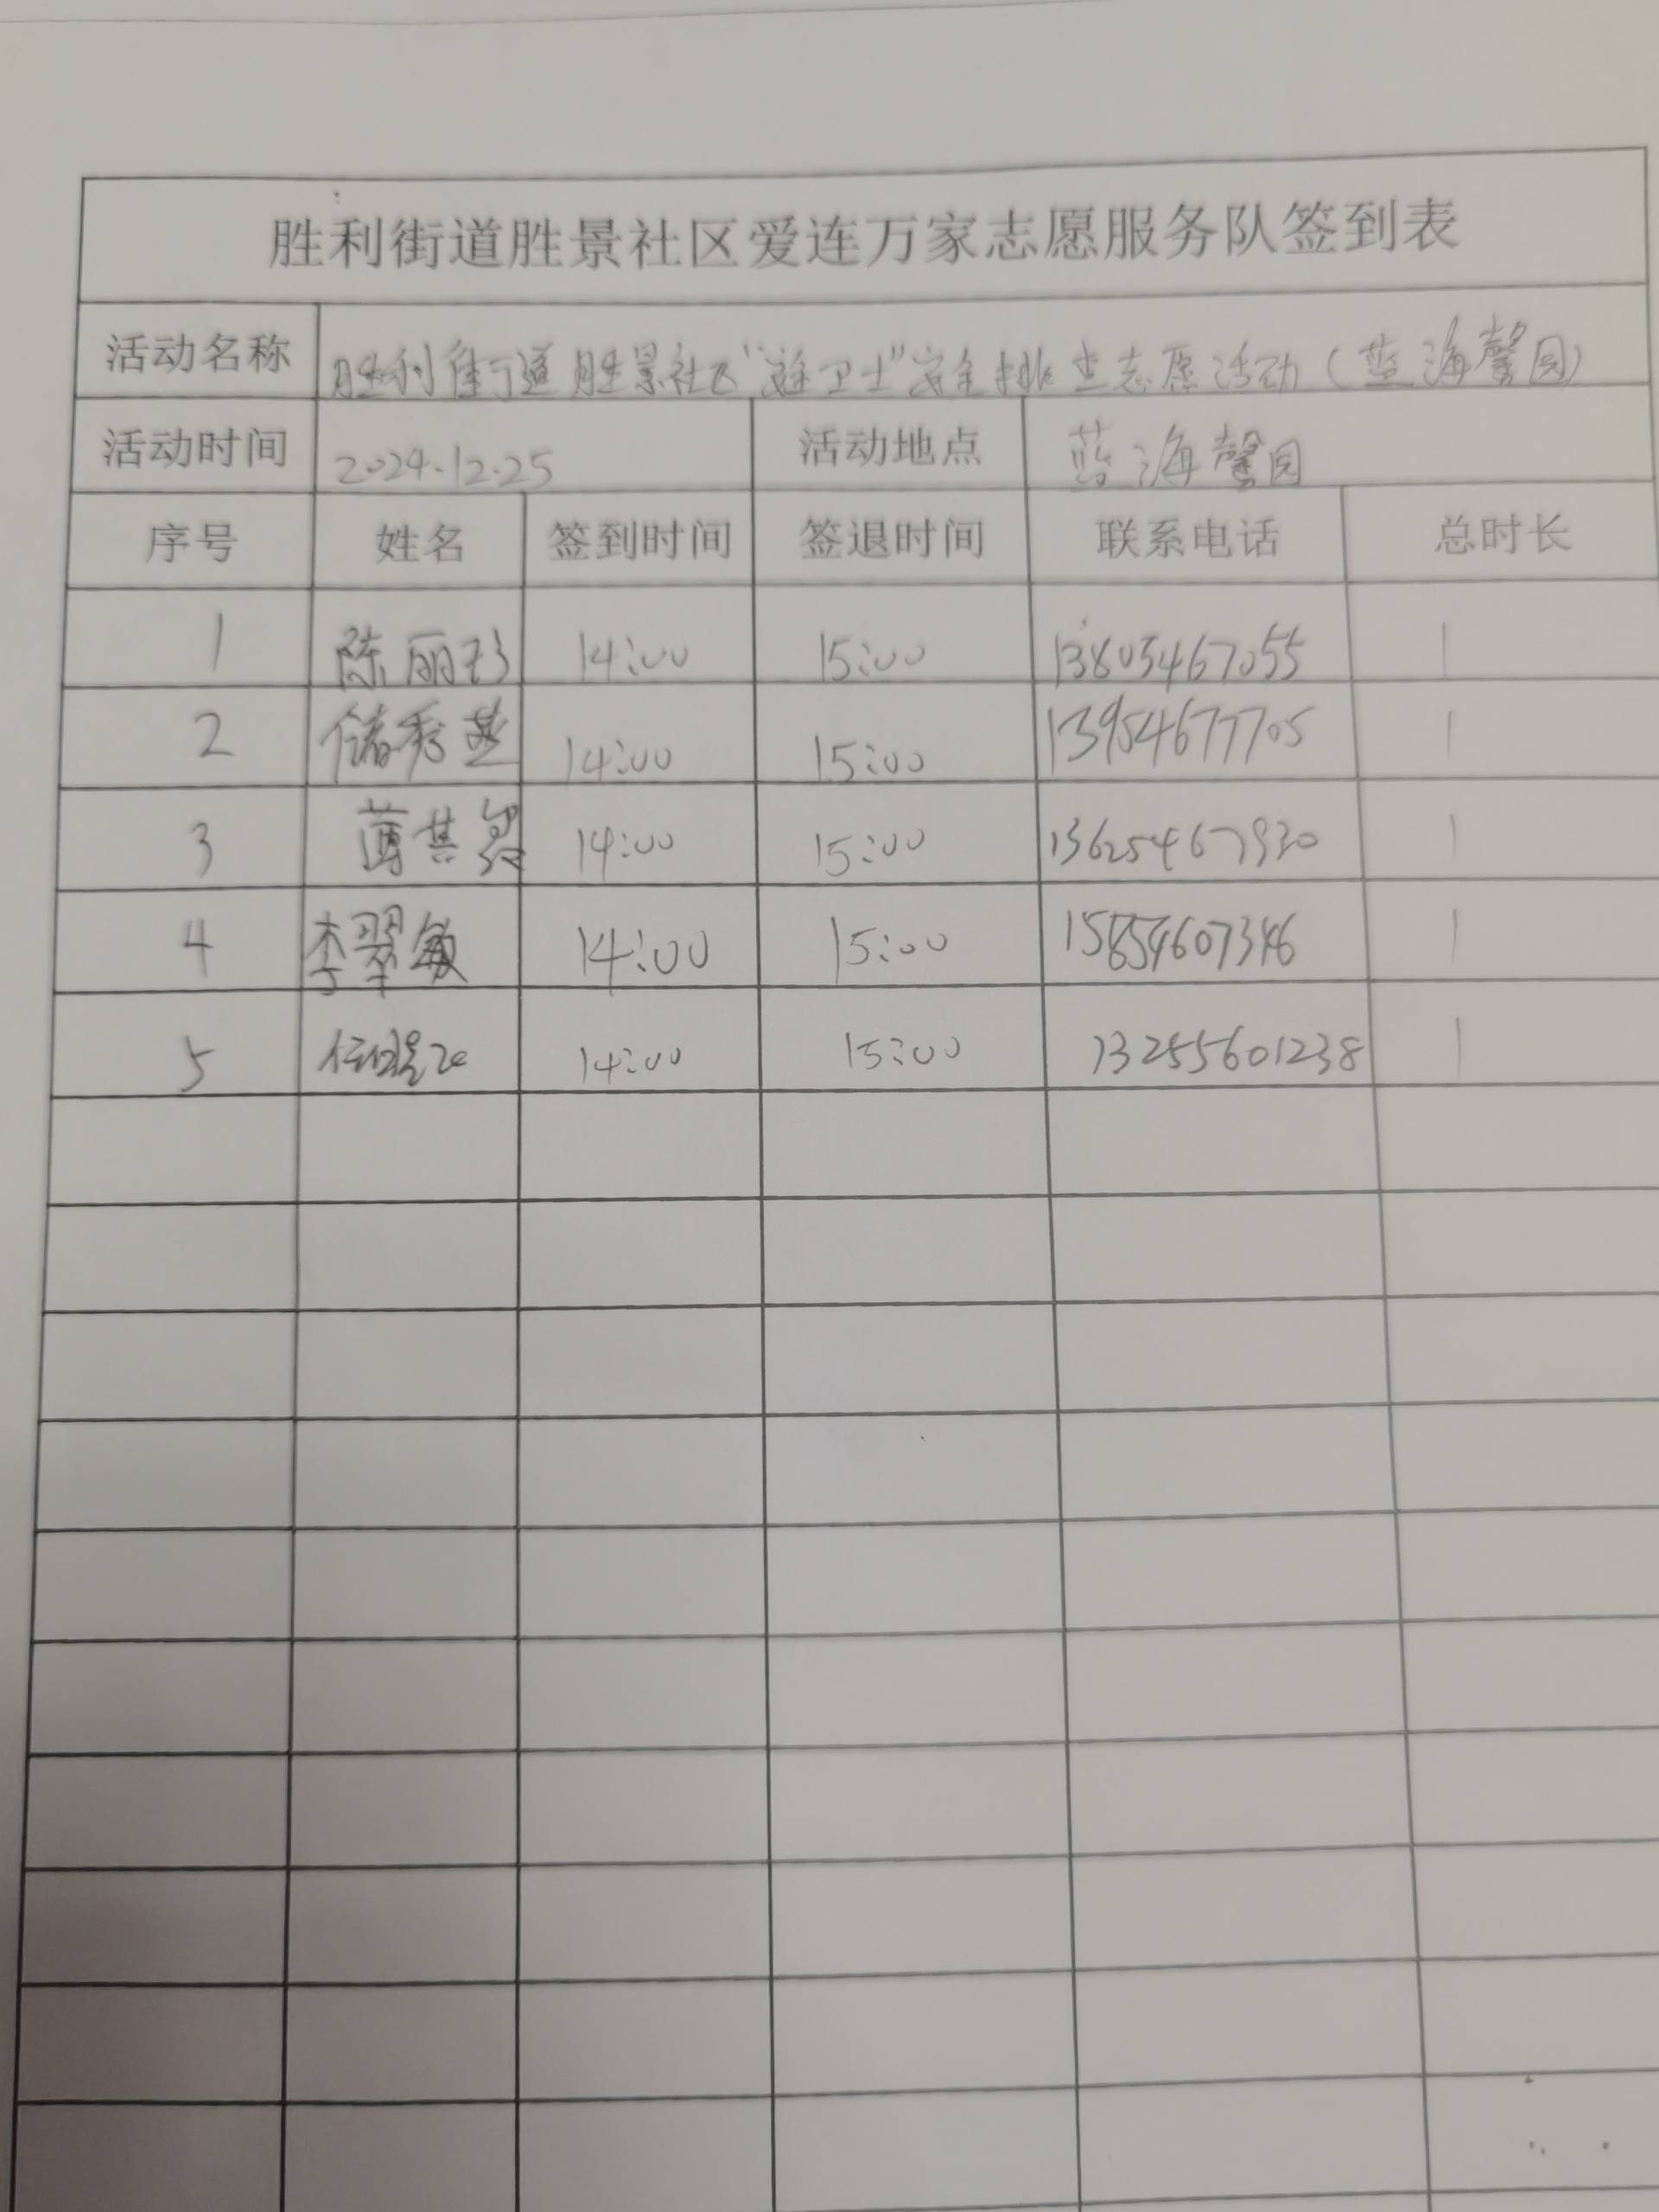 胜利街道胜景社区爱连万家志愿服务队签到表
活动名称 胜利街道胜景社区“ 卫士”安全排查志愿活动（蓝海馨园）
活动时间 2024.12.25 活动地点 蓝海馨园
序号 姓名 签到时间 签退时间 联系电话 总时长
1 陈丽珍 14:00 15:00 13805467055 1
2 储秀燕 14:00 15:00 13954677705 1
3 薄其 14:00 15:00 13625467930 1
4 李翠敏 14:00 15:00 1
5 14:00 15:00 13255601238 1